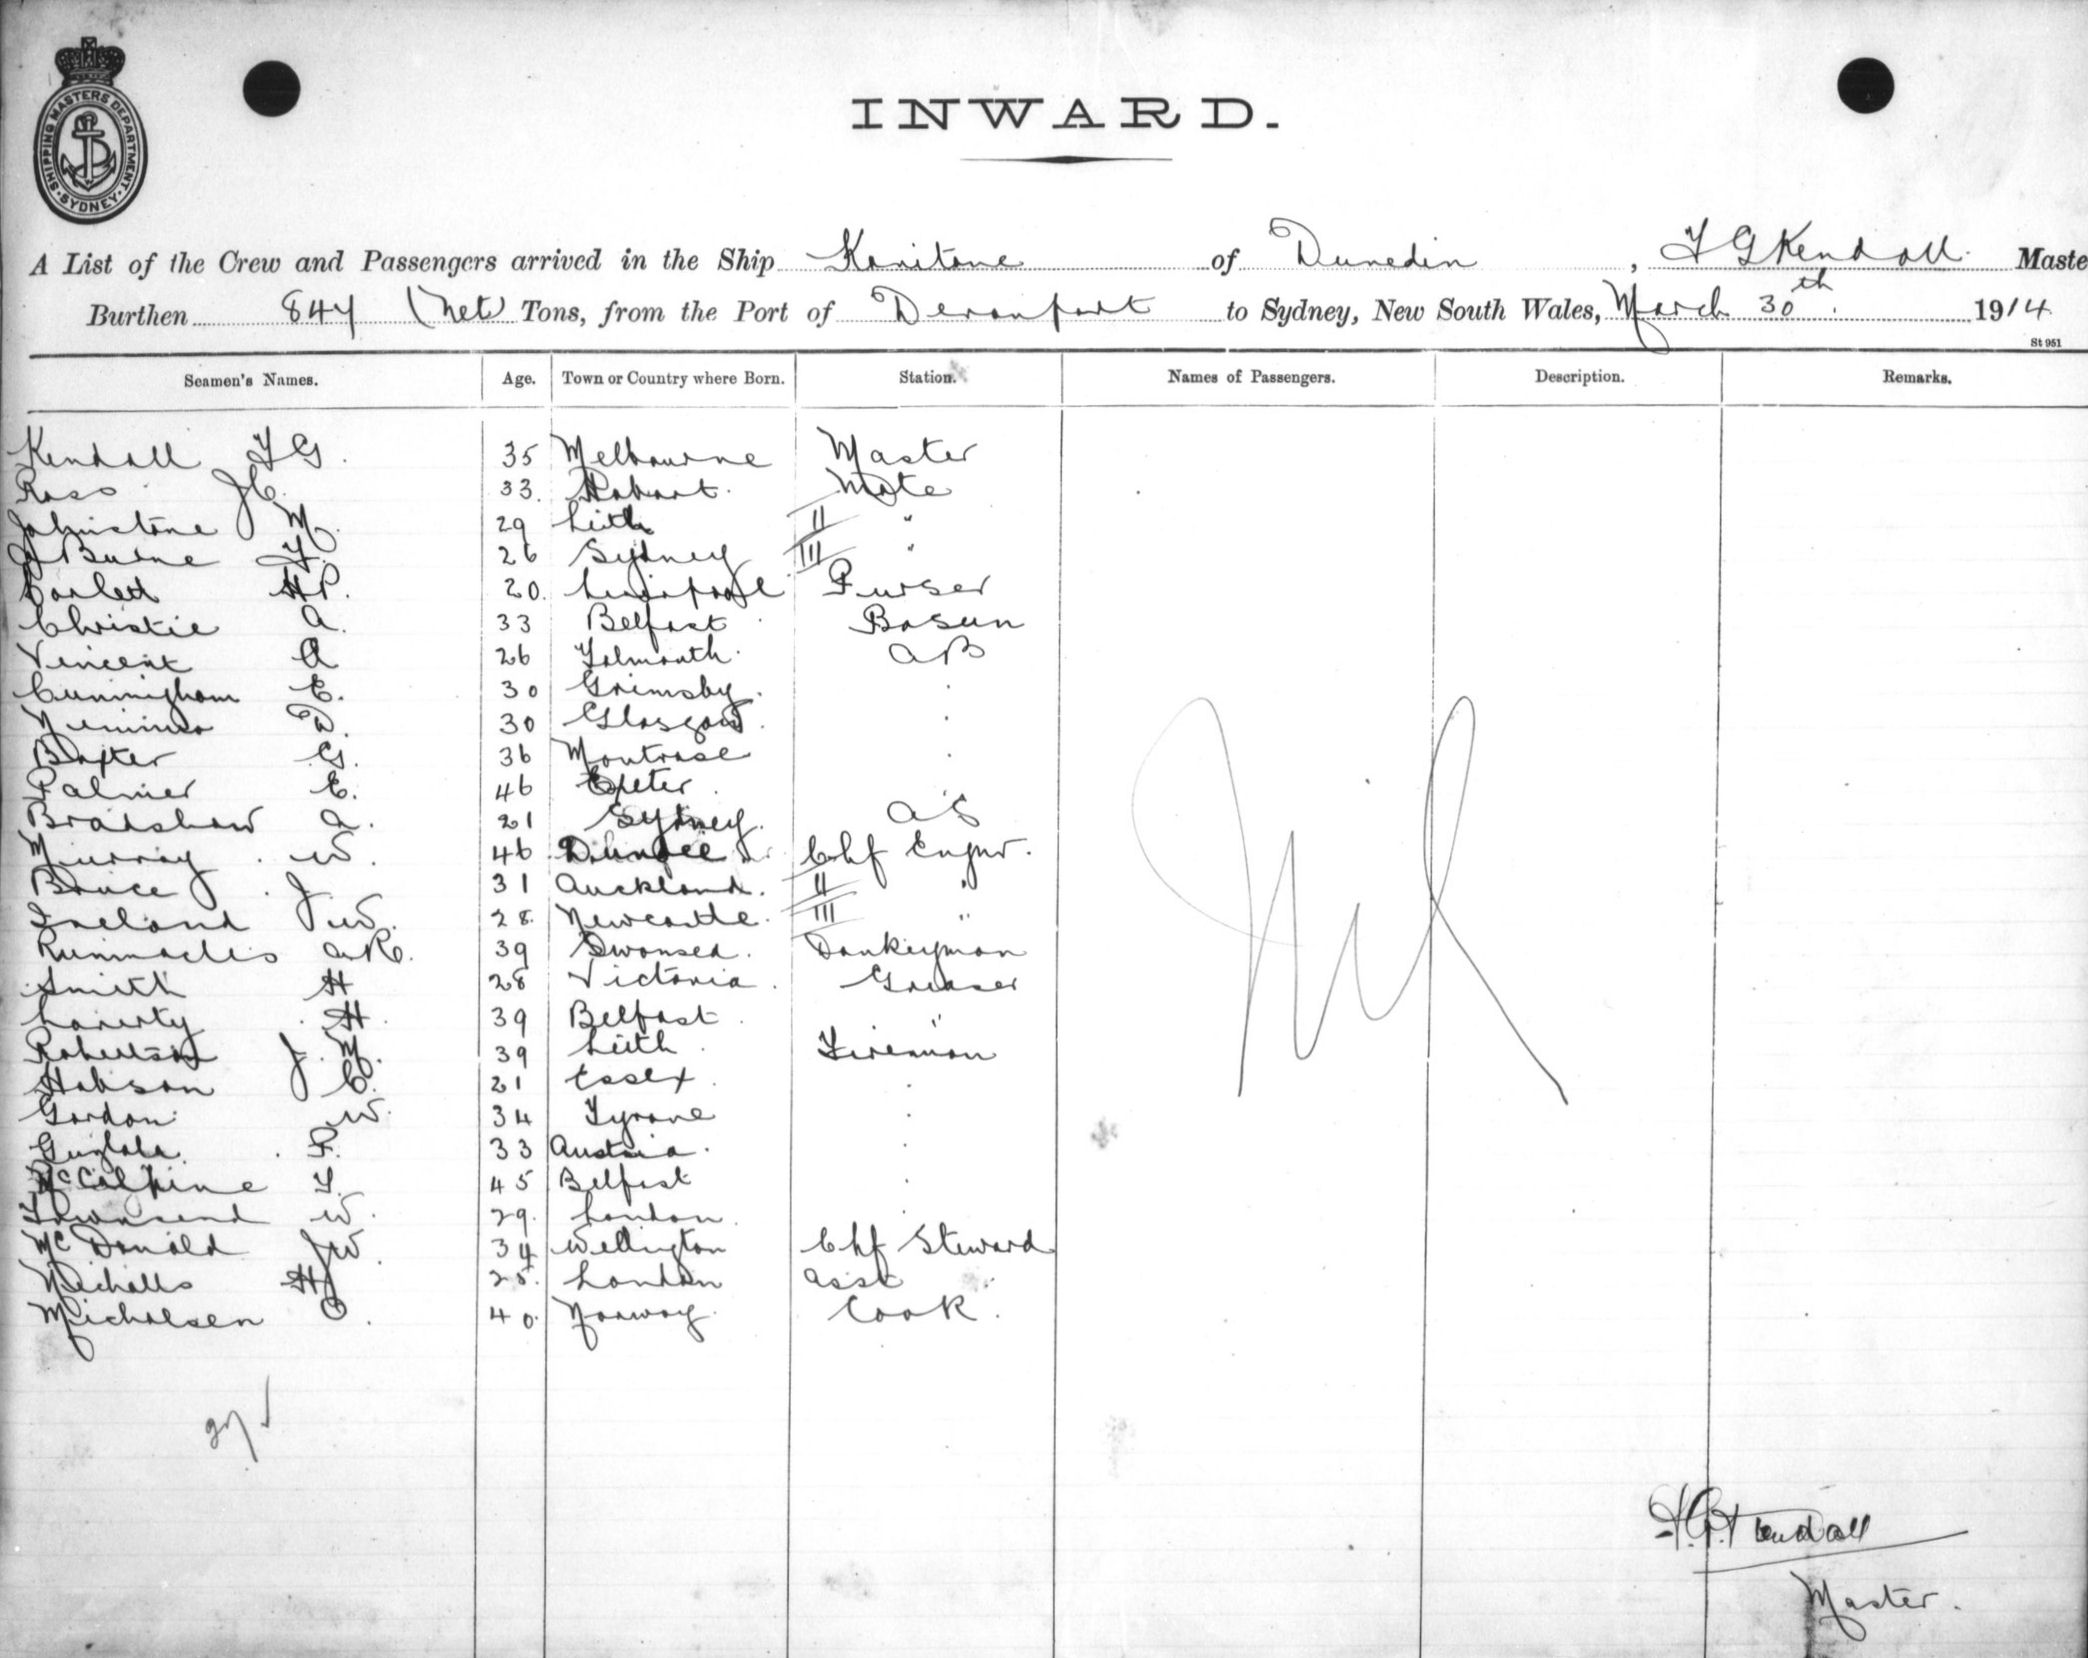 SHIPPING MASTERS DEPARTMENT · SYDNEY ·
INWARD.
A List of the Crew and Passengers arrived in the Ship Kanitane of Dunedin, F G Kendall Maste
Burthen 847 (Net) Tons, from the Port of Devonport to Sydney, New South Wales, March 30th. 1914
St 951
Seamen's Names. Age. Town or Country where Born. Station. Names of Passengers. Description. Remarks.
Kendall F G. 35 Melbourne Master
Ross J C. 33. Hobart. Mate
Johnstone M. 29 Leith II "
Burne F. 26 Sydney III "
H P. 20. Liverpool Purser
Christie A. 33 Belfast Bosun
Vincent A 26 Falmouth. AB
Cunningham E. 30 Grimsby.
D. 30 Glasgow.
Baxter G. 36 Montrose
Palmer E. 46 Exeter.
Bradshaw A. 21 Sydney. A S
Murray W. 46 Dundee Chf Engnr.
Bruce J 31 Auckland. II "
Ireland J W. 28. Newcastle. III "
39 Swansea. Donkeyman
Smith H 28 Victoria. Greaser
Laverty H. 39 Belfast. "
Robertson J. M. 39 Leith. Fireman
Hobson C. 21 Essex.
Gordon W. 34 Tyrone
P. 33 Austria.
McCalpine F. 45 Belfast
Townsend W. 29. London.
McDonald J W. 34 Wellington Chf Steward
Nicholls H 25. London Asst "
Micholsen O. 40. Norway. Cook.
Nil
27 ✓
F.G. Kendall
Master.